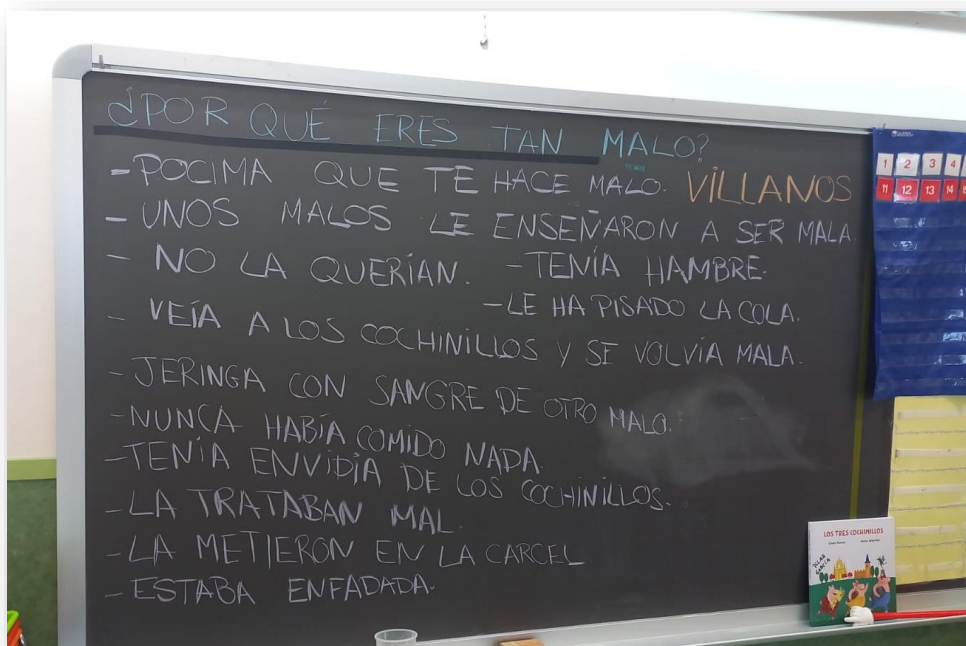 ¿POR QUÉ ERES TAN MALO?
-POCIMA QUE TE HACE MALO. VILLANOS
- UNOS MALOS LE ENSEÑARON A SER MALA.
- NO LA QUERÍAN. -TENÍA HAMBRE.
-LE HA PISADO LA COLA.
- VEÍA A LOS COCHINILLOS Y SE VOLVÍA MALA.
-JERINGA CON SANGRE DE OTRO MALO.
-NUNCA HABÍA COMIDO NADA.
-TENÍA ENVIDIA DE LOS COCHINILLOS.
-LA TRATABAN MAL.
-LA METIERON EN LA CARCEL
-ESTABA ENFADADA.
1 2 3 4
11 12 13 14
LOS TRES COCHINILLOS
PILAR GARCÍA